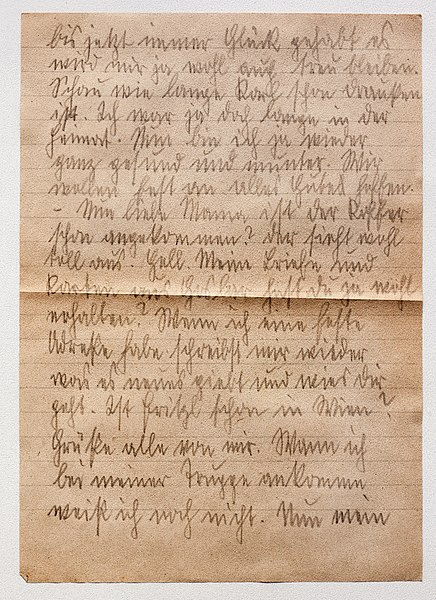 bis jetzt immer Glück gehabt es
wird mir ja wohl auch treu bleiben.
Schau wie lange Karl schon draußen
ist. Ich war ja doch lange in der
Heimat. Nun bin ich ja wieder
ganz gesund und munter. Wir
wollen fest an alles Gutes hoffen.
- Nun liebe Mama, ist der Koffer
schon angekommen? Der sieht wohl
toll aus. Gell. Meine Briefe und
Karten aus hast Du ja wohl
erhalten? Wenn ich eine feste
Adreße habe schreibst mir wieder
was es neues giebt und wies Dir
geht. Ist Fritzl schon in Wien?
Grüße alle von mir. Wann ich
bei meiner Truppe ankomme
weiß ich noch nicht. Nun mein